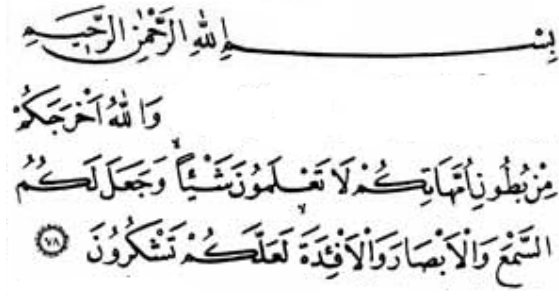 بِسْمِ اللهِ الرَّحْمٰنِ الرَّحِيمِ
وَاللهُ اَخْرَجَكُمْ
مِنْ بُطُونِ اُمَّهَاتِكُمْ لَا تَعْلَمُونَ شَيْـًٔاۙ وَجَعَلَ لَكُمُ
السَّمْعَ وَالْاَبْصَارَ وَالْاَفْـِٔدَةَۙ لَعَلَّكُمْ تَشْكُرُونَ ﴿٧٨﴾